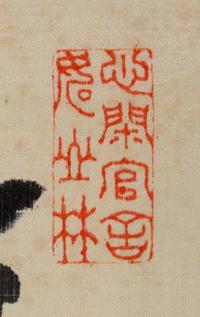 心閑官舍
山林